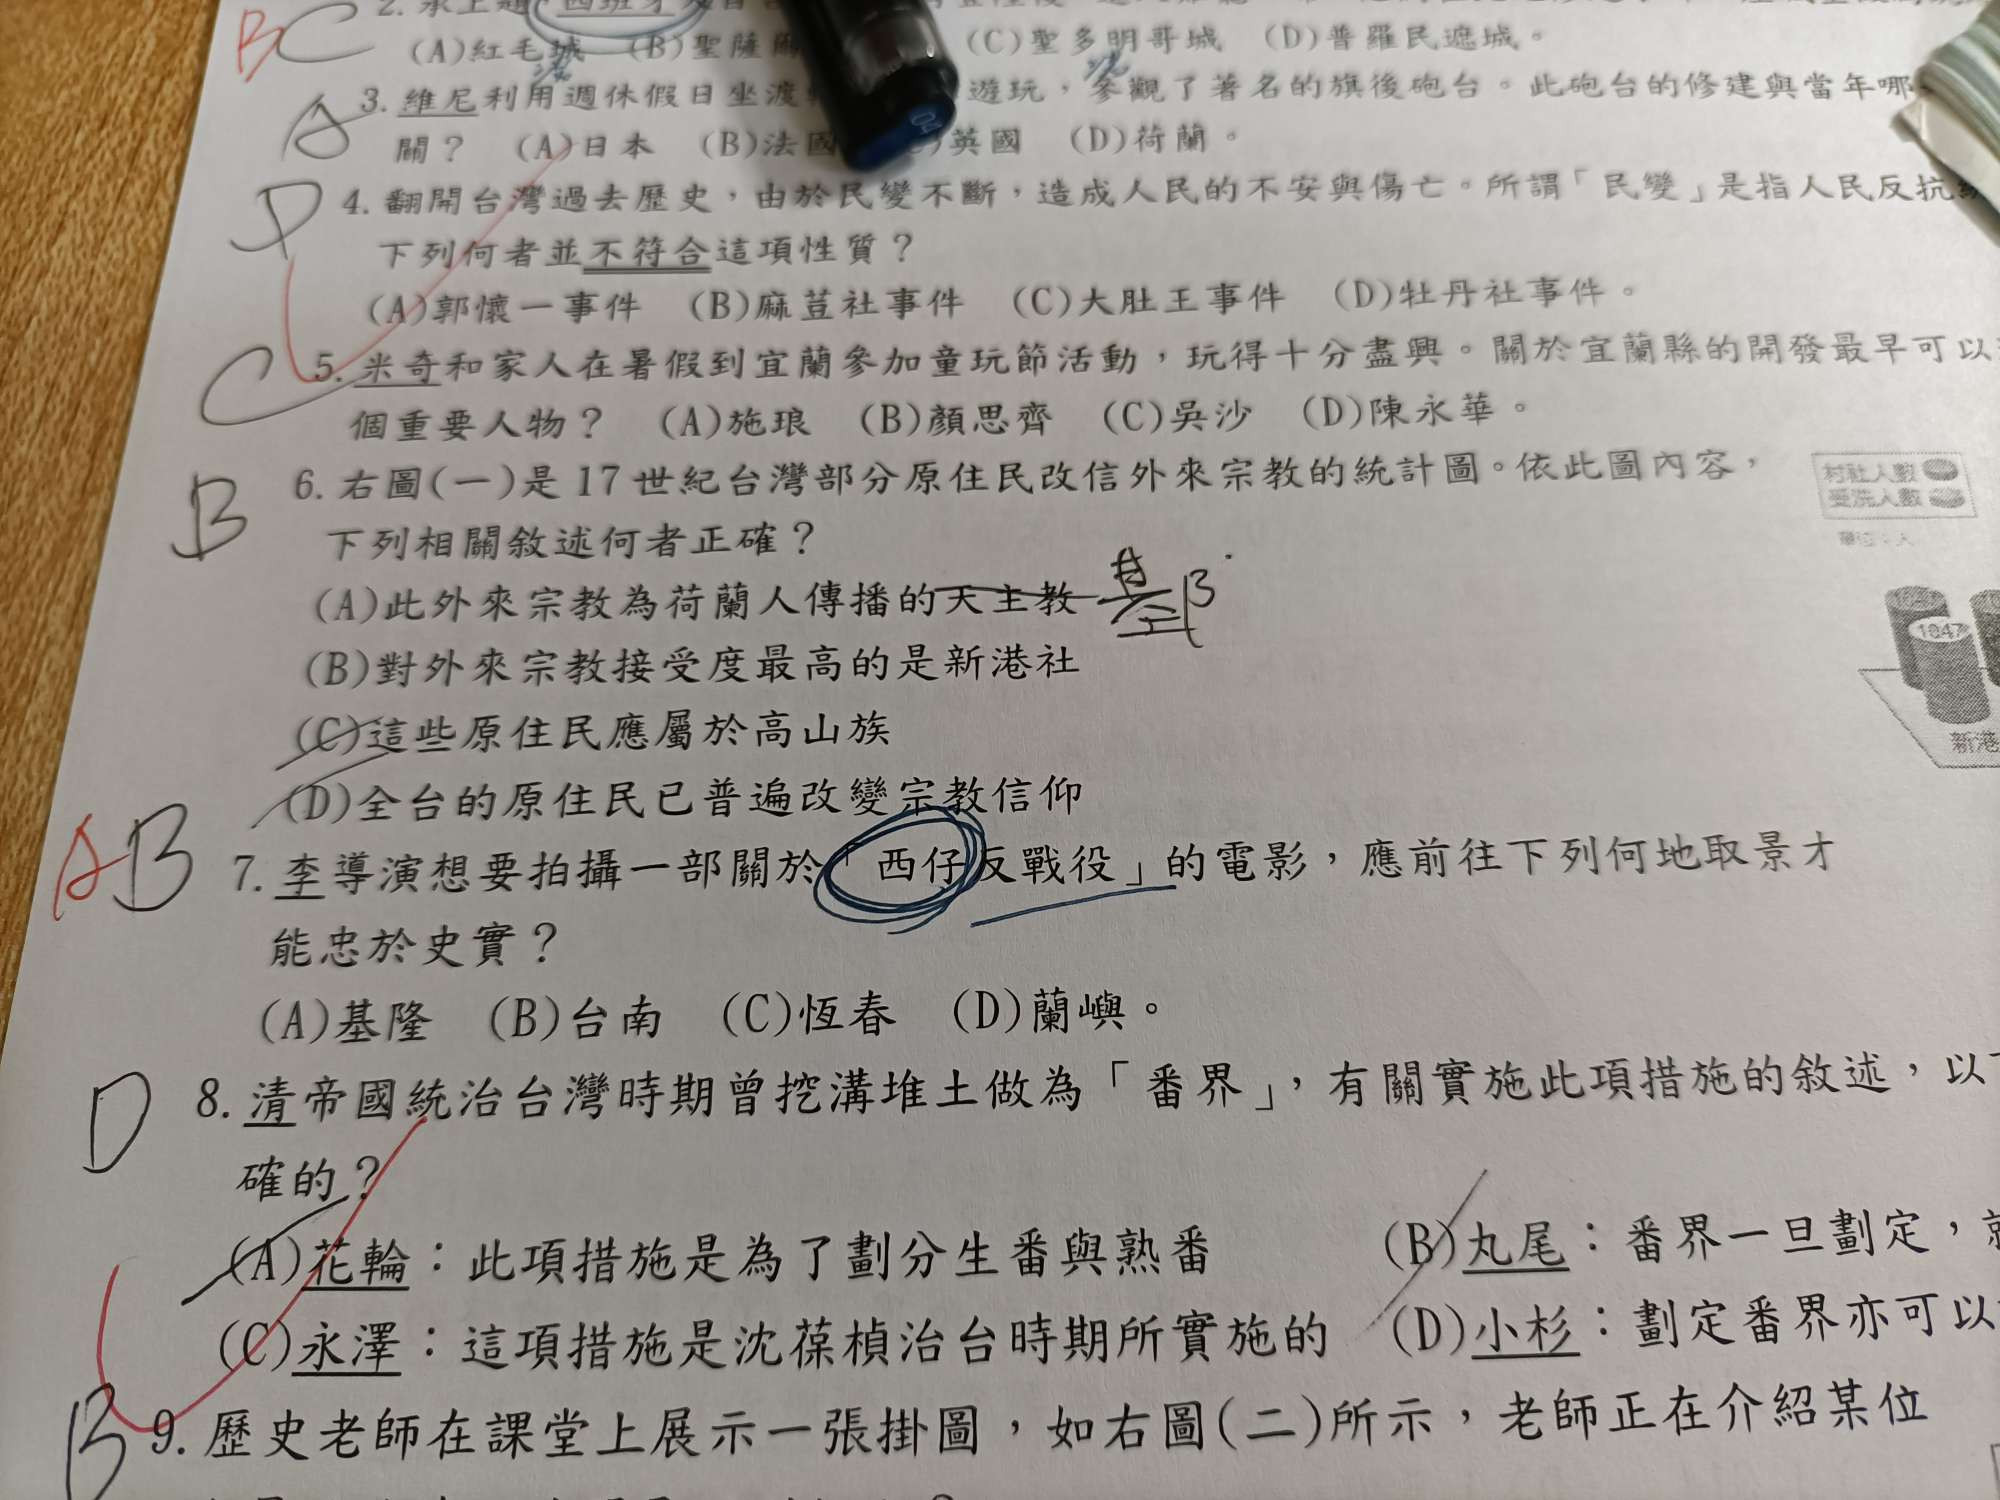 B C 2. 承上題
(A)紅毛城 (B)聖薩爾 (C)聖多明哥城 (D)普羅民遮城。
A 3. 維尼利用週休假日坐渡 遊玩，參觀了著名的旗後砲台。此砲台的修建與當年哪
關？ (A)日本 (B)法國 英國 (D)荷蘭。
D 4. 翻開台灣過去歷史，由於民變不斷，造成人民的不安與傷亡。所謂「民變」是指人民反抗
下列何者並不符合這項性質？
(A)郭懷一事件 (B)麻荳社事件 (C)大肚王事件 (D)牡丹社事件。
C 5. 米奇和家人在暑假到宜蘭參加童玩節活動，玩得十分盡興。關於宜蘭縣的開發最早可以
個重要人物？ (A)施琅 (B)顏思齊 (C)吳沙 (D)陳永華。
B 6. 右圖(一)是17世紀台灣部分原住民改信外來宗教的統計圖。依此圖內容，
村社人數
受洗人數
單位：人
下列相關敘述何者正確？
(A)此外來宗教為荷蘭人傳播的天主教 基
(B)對外來宗教接受度最高的是新港社
1047
(C)這些原住民應屬於高山族
新港
(D)全台的原住民已普遍改變宗教信仰
A B 7. 李導演想要拍攝一部關於「西仔反戰役」的電影，應前往下列何地取景才
能忠於史實？
(A)基隆 (B)台南 (C)恆春 (D)蘭嶼。
D 8. 清帝國統治台灣時期曾挖溝堆土做為「番界」，有關實施此項措施的敘述，以下
確的？
(A)花輪：此項措施是為了劃分生番與熟番 (B)丸尾：番界一旦劃定，就
(C)永澤：這項措施是沈葆楨治台時期所實施的 (D)小杉：劃定番界亦可以
B 9. 歷史老師在課堂上展示一張掛圖，如右圖(二)所示，老師正在介紹某位